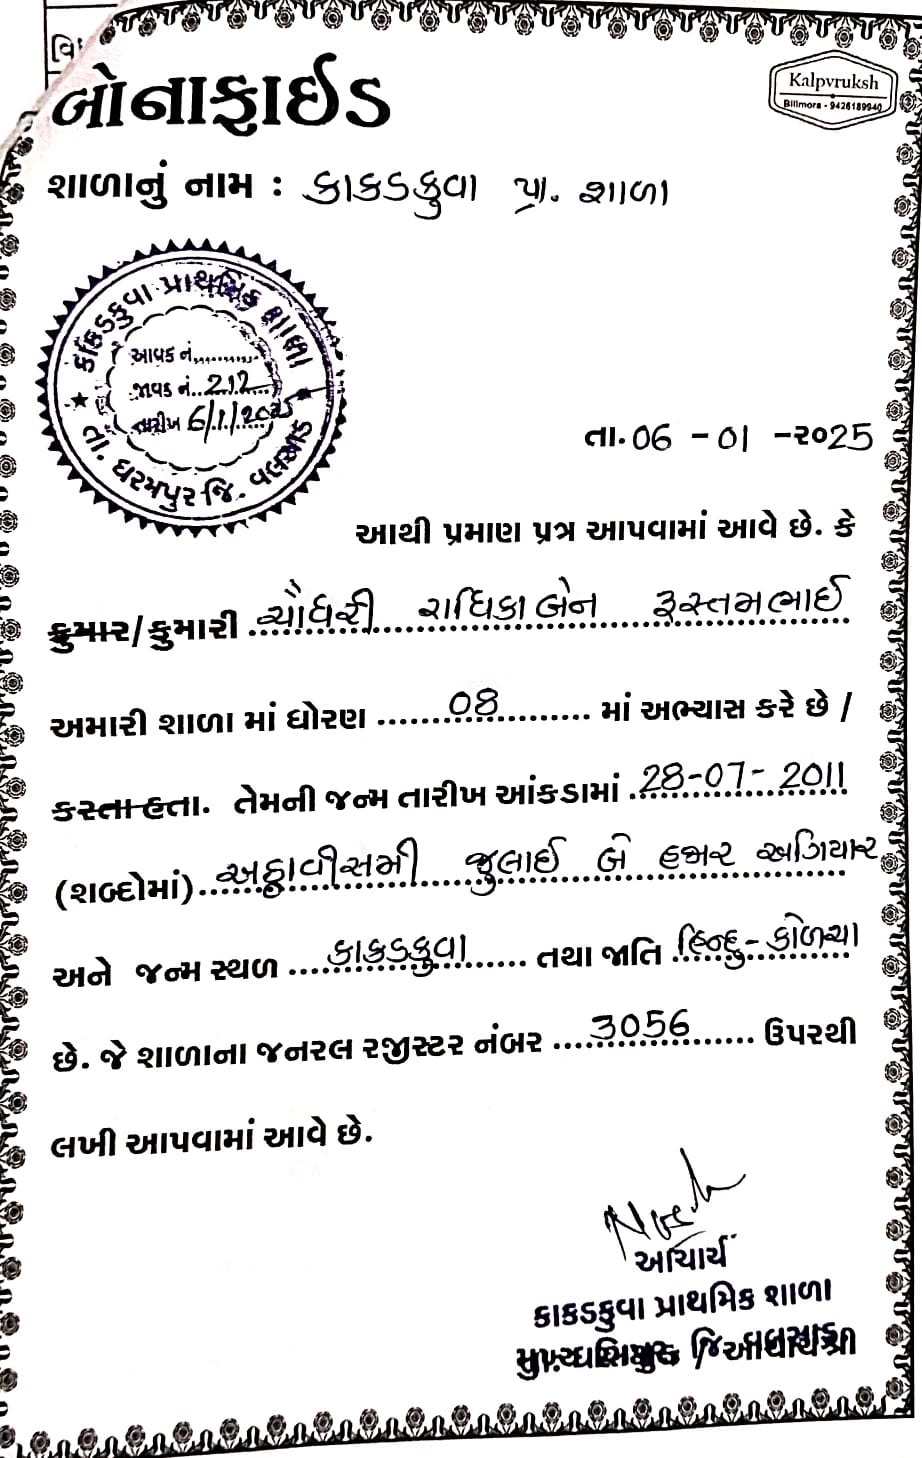 વિ
બોનાફાઈડ
Kalpvruksh
Billmora - 9426189940
શાળાનું નામ : કાકડકુવા પ્રા. શાળા
કાકડકુવા પ્રાથમિક શાળા
આવક નં...........
જાવક નં..212....
તારીખ 6/1/2025
તા. ધરમપુર જિ. વલસાડ
તા. 06 - 01 - ૨૦25
આથી પ્રમાણ પત્ર આપવામાં આવે છે. કે
કુમાર/કુમારી ચૌધરી રાધિકાબેન રૂસ્તમભાઈ
અમારી શાળા માં ધોરણ ....... 08 ....... માં અભ્યાસ કરે છે /
કરતા હતા. તેમની જન્મ તારીખ આંકડામાં 28-07-2011
(શબ્દોમાં) અઠ્ઠાવીસમી જુલાઈ બે હજાર અગિયાર
અને જન્મ સ્થળ ... કાકડકુવા ... તથા જાતિ હિન્દુ - કોળચા
છે. જે શાળાના જનરલ રજીસ્ટર નંબર ... 3056 ... ઉપરથી
લખી આપવામાં આવે છે.
આચાર્ય
કાકડકુવા પ્રાથમિક શાળા